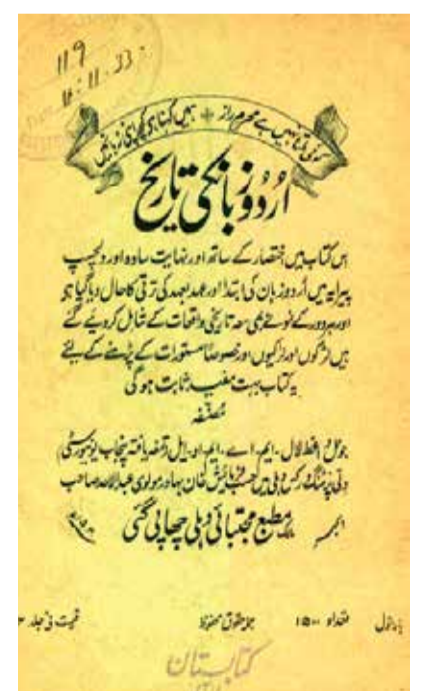 119
11.11.33
کوئی ملتا نہیں ہے محرم راز ہمیں کہنا ہے کچھ اپنی زباں میں
اُردو زبان کی تاریخ
اس کتاب میں اختصار کے ساتھ اور نہایت سادہ اور دلچسپ
پیرایہ میں اُردو زبان کی ابتدا اور عہد بعہد کی ترقی کا حال دیا گیا ہو
اور ہر دور کے نمونے بھی معہ تاریخی واقعات کے شامل کردیے گئے
ہیں لڑکوں اور لڑکیوں اور خصوصاً مستورات کے پڑھنے کے لیے
یہ کتاب بہت مفید ثابت ہوگی
مصنفہ
لال۔ ایم۔ اے۔ ایم۔ او۔ ایل تمغہ یافتہ پنجاب یونیورسٹی
دلی پرنٹنگ ورکس دہلی میں حسب فرمایش خان بہادر مولوی عبدالاحد صاحب
مطبع مجتبائی دہلی چھاپی گئی
بار اول تعداد ۱۵۰۰ جملہ حقوق محفوظ قیمت فی جلد
کتابستان